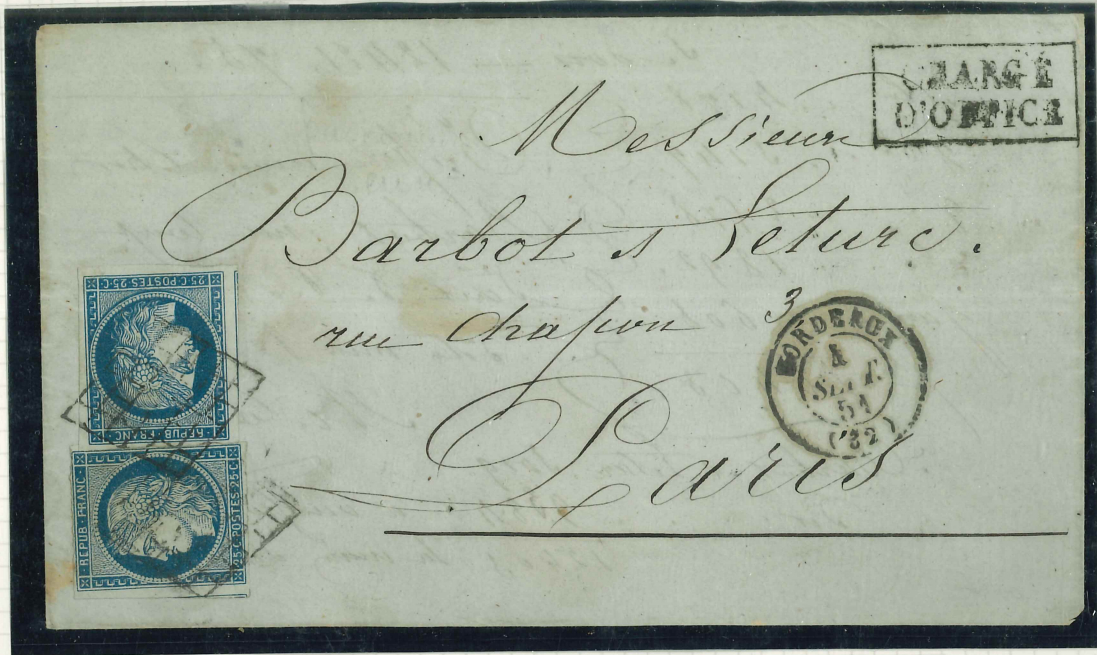 CHARGÉ
D'OFFICE
Messieurs
Barbot & Leturc.
rue Chapon 3
Paris
BORDEAUX
SEPT.
51
(32)
25 C POSTES 25 C
REPUB FRANC
REPUB FRANC
25 C POSTES 25 C